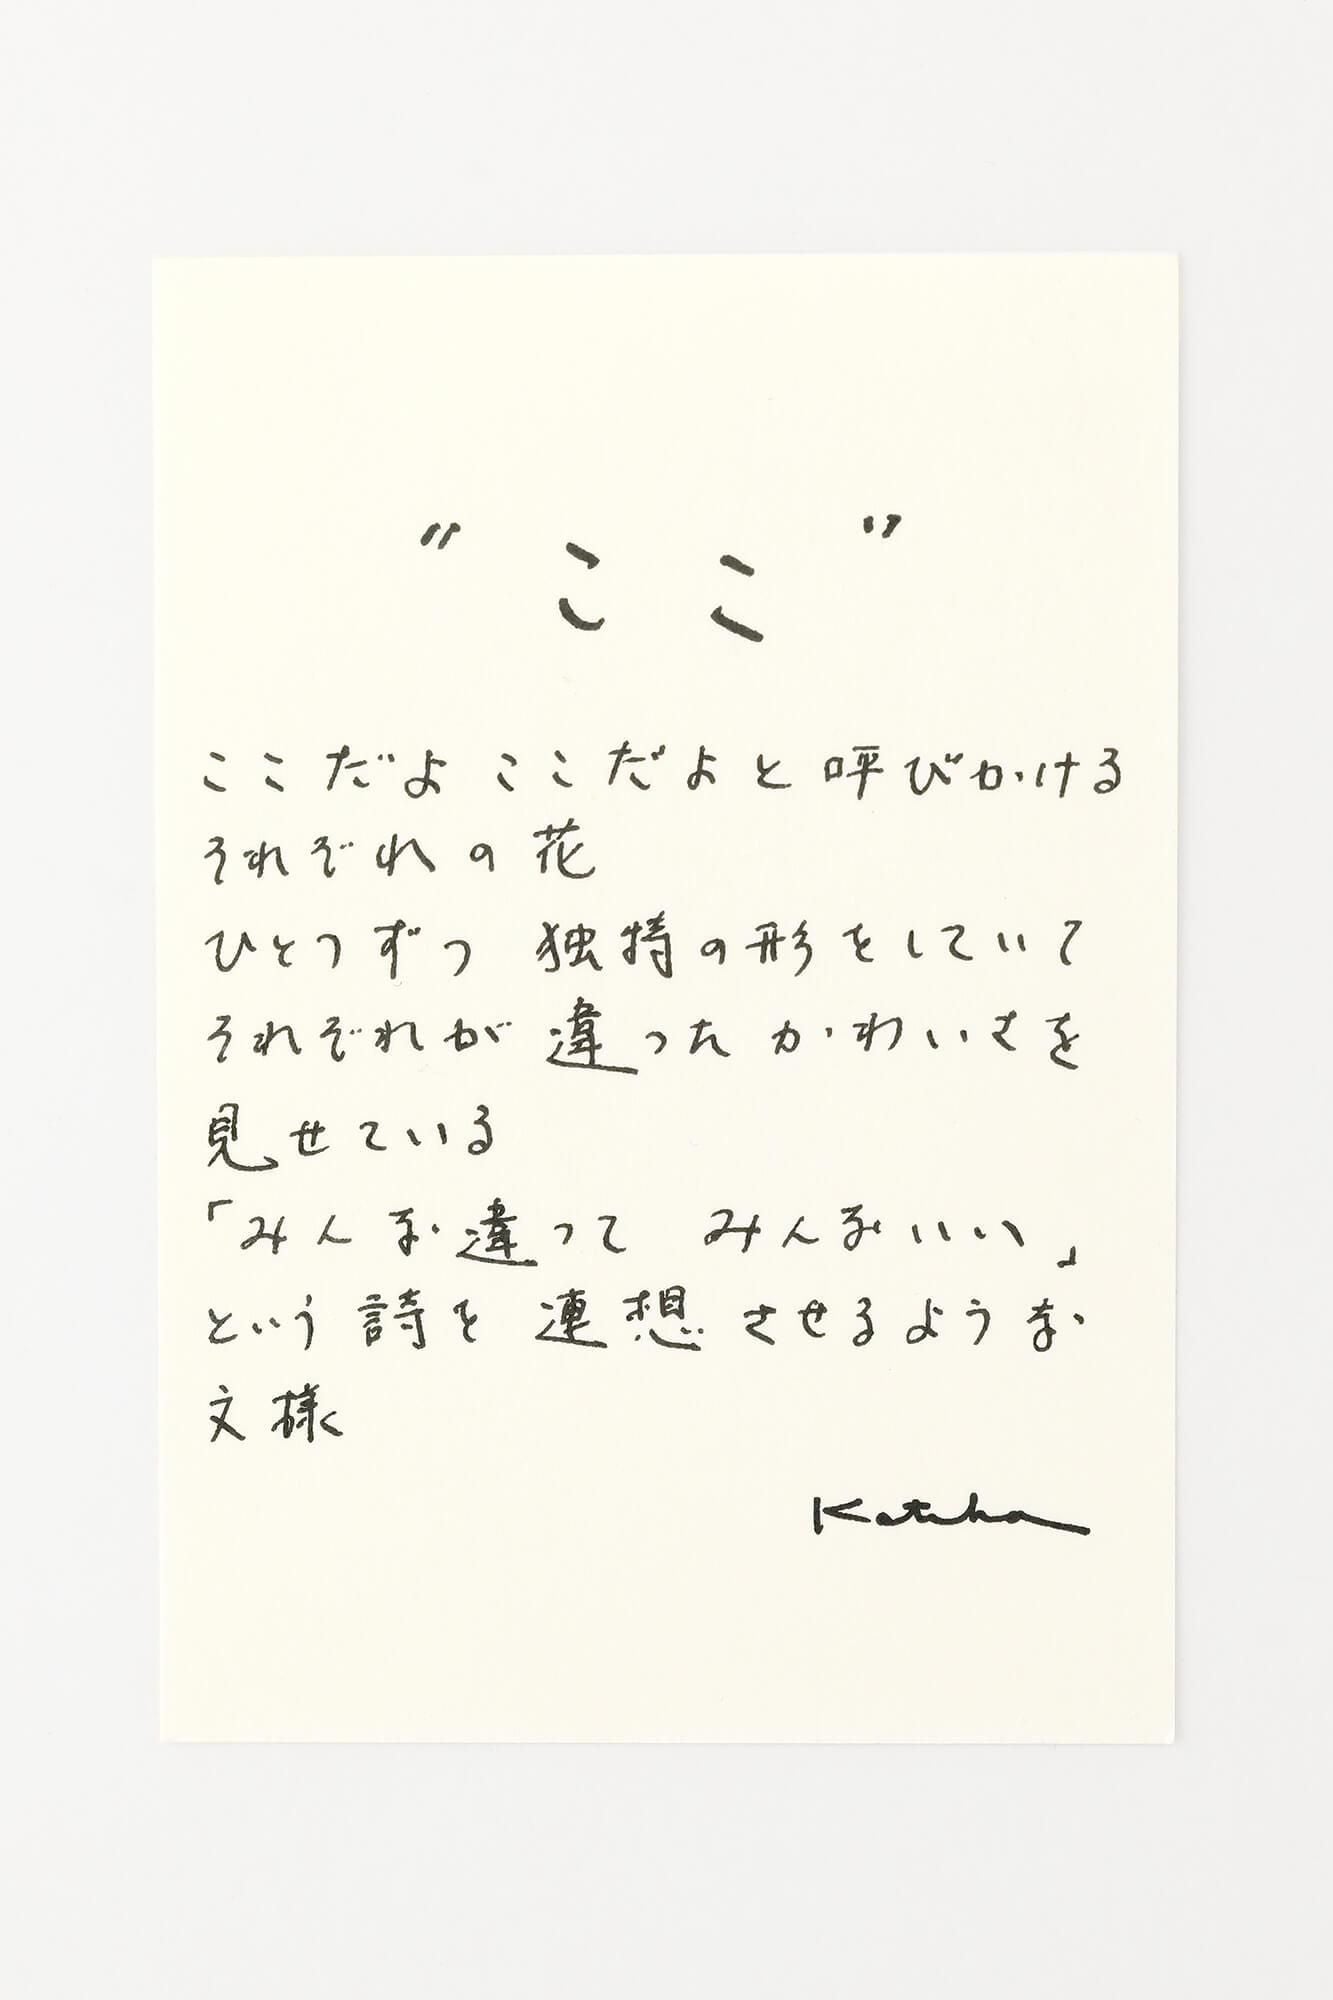 "ここ"
ここだよ ここだよと呼びかける
それぞれの花
ひとつずつ 独特の形をしていて
それぞれが違ったかわいさを
見せている
「みんな違って みんないい」
という詩を連想させるような
文様
Katsuha